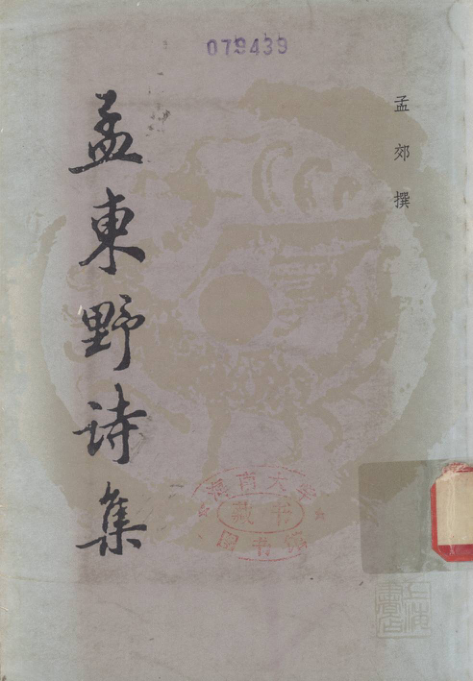 079439
孟郊撰
孟東野诗集
南大
藏书
图书馆